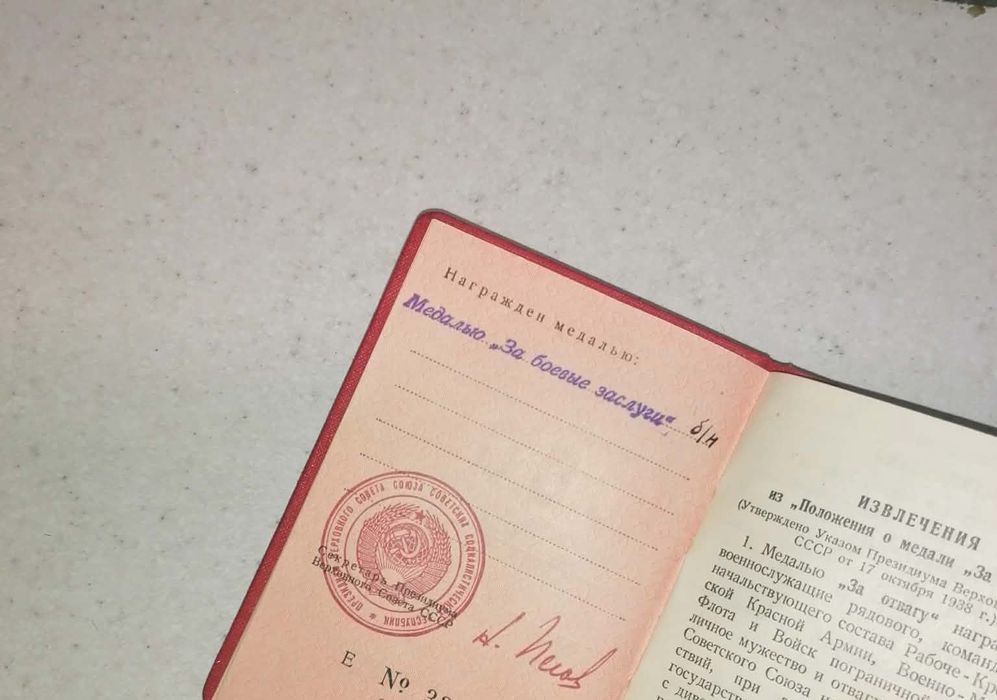 Награжден медалью:
Медалью „За боевые заслуги“ б/н
ПРЕЗИДИУМ ВЕРХОВНОГО СОВЕТА СОЮЗА СОВЕТСКИХ СОЦИАЛИСТИЧЕСКИХ РЕСПУБЛИК
Секретарь Президиума
Верховного Совета СССР
Е № 38
ИЗВЛЕЧЕНИЯ
из „Положения о медали „За
(Утверждено Указом Президиума Верхо
СССР от 17 октября 1938 г.)
1. Медалью „За отвагу“ награ
военнослужащие рядового, коман
начальствующего состава Рабоче-Кр
ской Красной Армии, Военно-М
Флота и Войск погранич
личное мужество и отваг
Советского Союза
ствий, при
государств
с диве